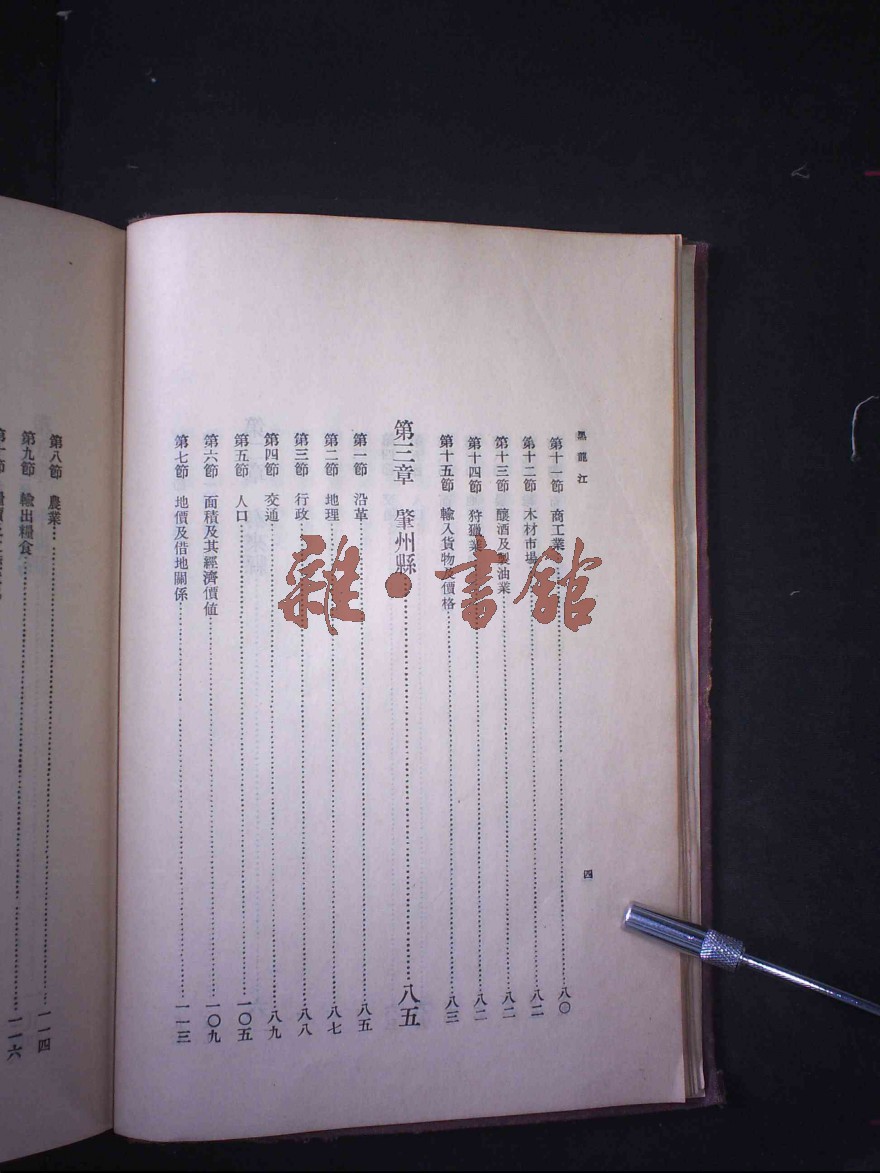 黑龍江
四
第十一節 商工業……八〇
第十二節 木材市場……八二
第十三節 釀酒及製油業……八二
第十四節 狩獵業……八二
第十五節 輸入貨物及價格……八三
第三章 肇州縣……八五
第一節 沿革……八五
第二節 地理……八七
第三節 行政……八八
第四節 交通……八九
第五節 人口……一〇五
第六節 面積及其經濟價値……一〇九
第七節 地價及借地關係……一一三
第八節 農業……一一四
第九節 輸出糧食……一一六
雜·書館